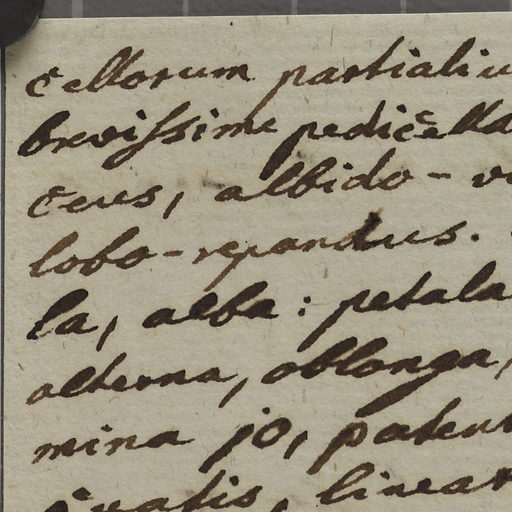 cellorum partialiu
brevissime pedicella
ceus, albido-vi
lobo-repandus.
la, alba: petala
alterna, oblonga,
mina 10, patent
linear